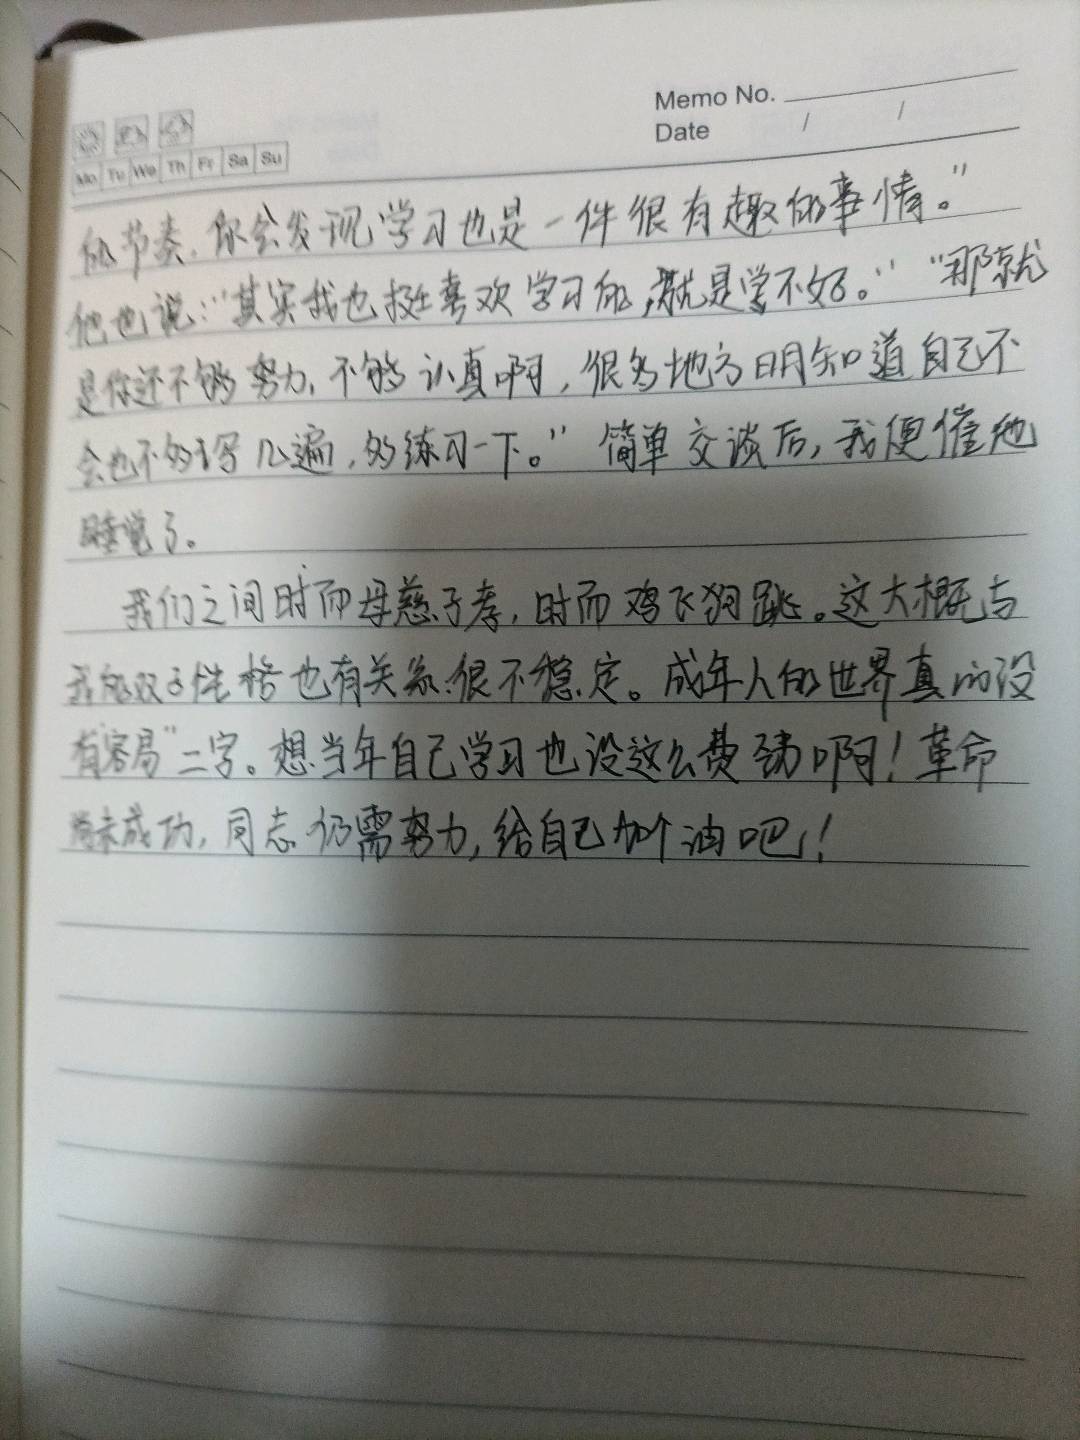 Memo No.
Date / /
Mo Tu We Th Fr Sa Su
的节奏,你会发现学习也是一件很有趣的事情。"
他也说:"其实我也挺喜欢学习的,就是学不好。" "那就
是你还不够努力,不够认真啊,很多地方明知道自己不
会也不多写几遍,多练习一下。" 简单交谈后,我便催他
睡觉了。
我们之间时而母慈子孝,时而鸡飞狗跳。这大概与
我的双子性格也有关系,很不稳定。成年人的世界真的没
有"容易"二字。想当年自己学习也没这么费劲啊!革命
尚未成功,同志仍需努力,给自己加个油吧!